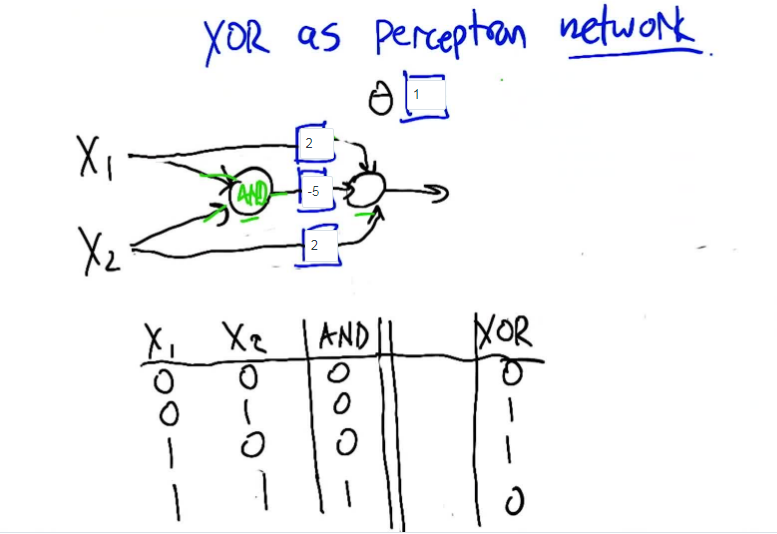 XOR as perceptron network.
θ 1
X1 2
AND -5
X2 2
X1 X2 AND XOR
0 0 0 0
0 1 0 1
1 0 0 1
1 1 1 0